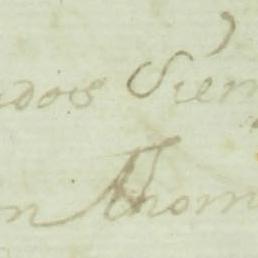 ados Siem
n Thom